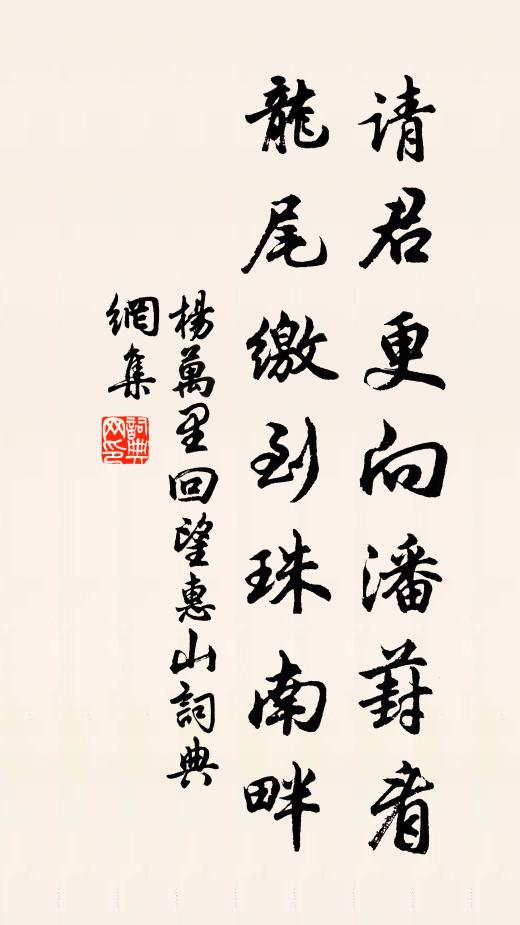 请君更向潘葑看
龍尾繳到珠南畔
楊萬里回望惠山詞典
網集
詞典网印